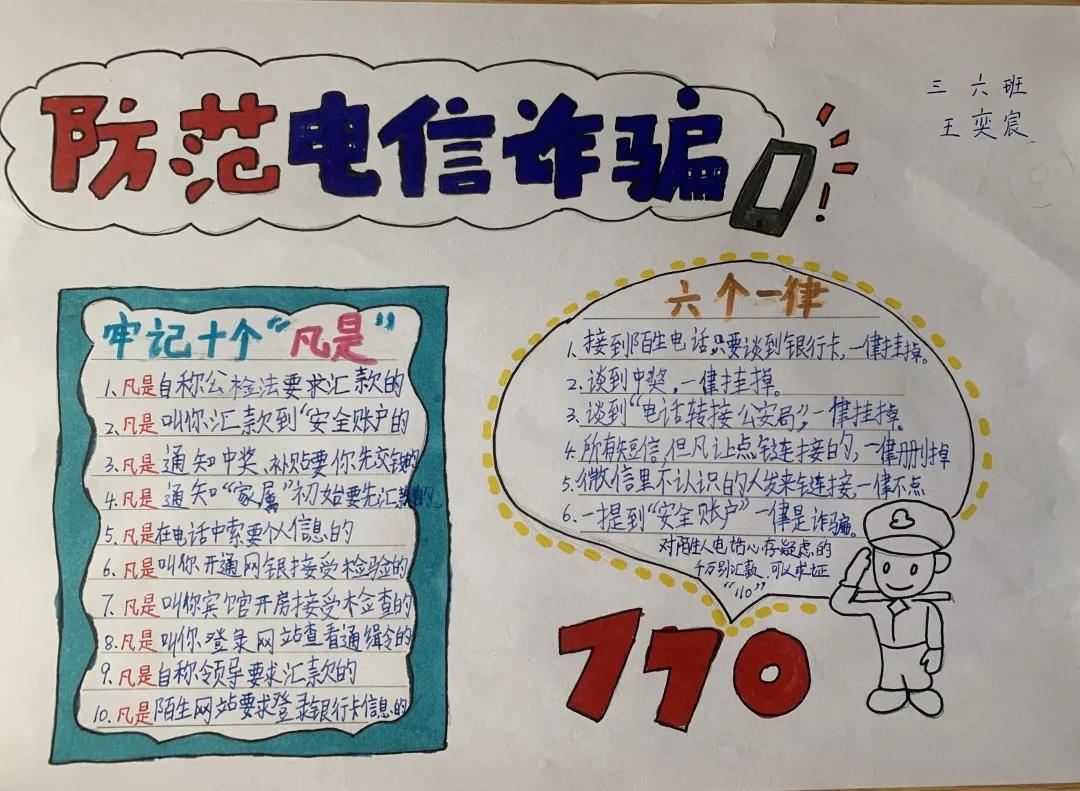 防范电信诈骗
三六班
王奕宸
牢记十个“凡是”
1.凡是自称公检法要求汇款的
2.凡是叫你汇款到“安全账户的
3.凡是通知中奖、补贴要你先交钱的
4.凡是通知“家属”初始要先汇款的。
5.凡是在电话中索要个人信息的
6.凡是叫你开通网银接受检验的
7.凡是叫你宾馆开房接受检查的
8.凡是叫你登录网站查看通缉令的
9.凡是自称领导要求汇款的
10.凡是陌生网站要求登录银行卡信息的
六个一律
1.接到陌生电话,只要谈到银行卡,一律挂掉。
2.谈到中奖,一律挂掉。
3.谈到“电话转接公安局”,一律挂掉。
4.所有短信,但凡让点链连接的,一律删掉
5.微信里不认识的人发来链连接,一律不点
6.一提到“安全账户”一律是诈骗。
对陌生人电话心存疑虑的
千万别汇款,可以求证
“110”
110